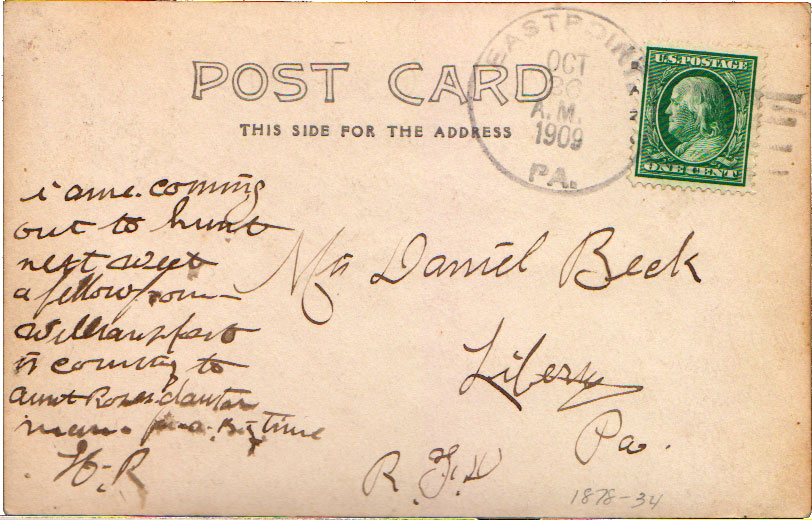 POST CARD
THIS SIDE FOR THE ADDRESS
EASTPOINT
OCT
A.M.
1909
PA.
U.S. POSTAGE
ONE CENT
i ame coming
out to hunt
next week
a fellow from
Williamsport
is coming to
aunt
for a Big time
H-R
Mr Daniel Beck
Liberty
Pa.
R.F.D
1878-34